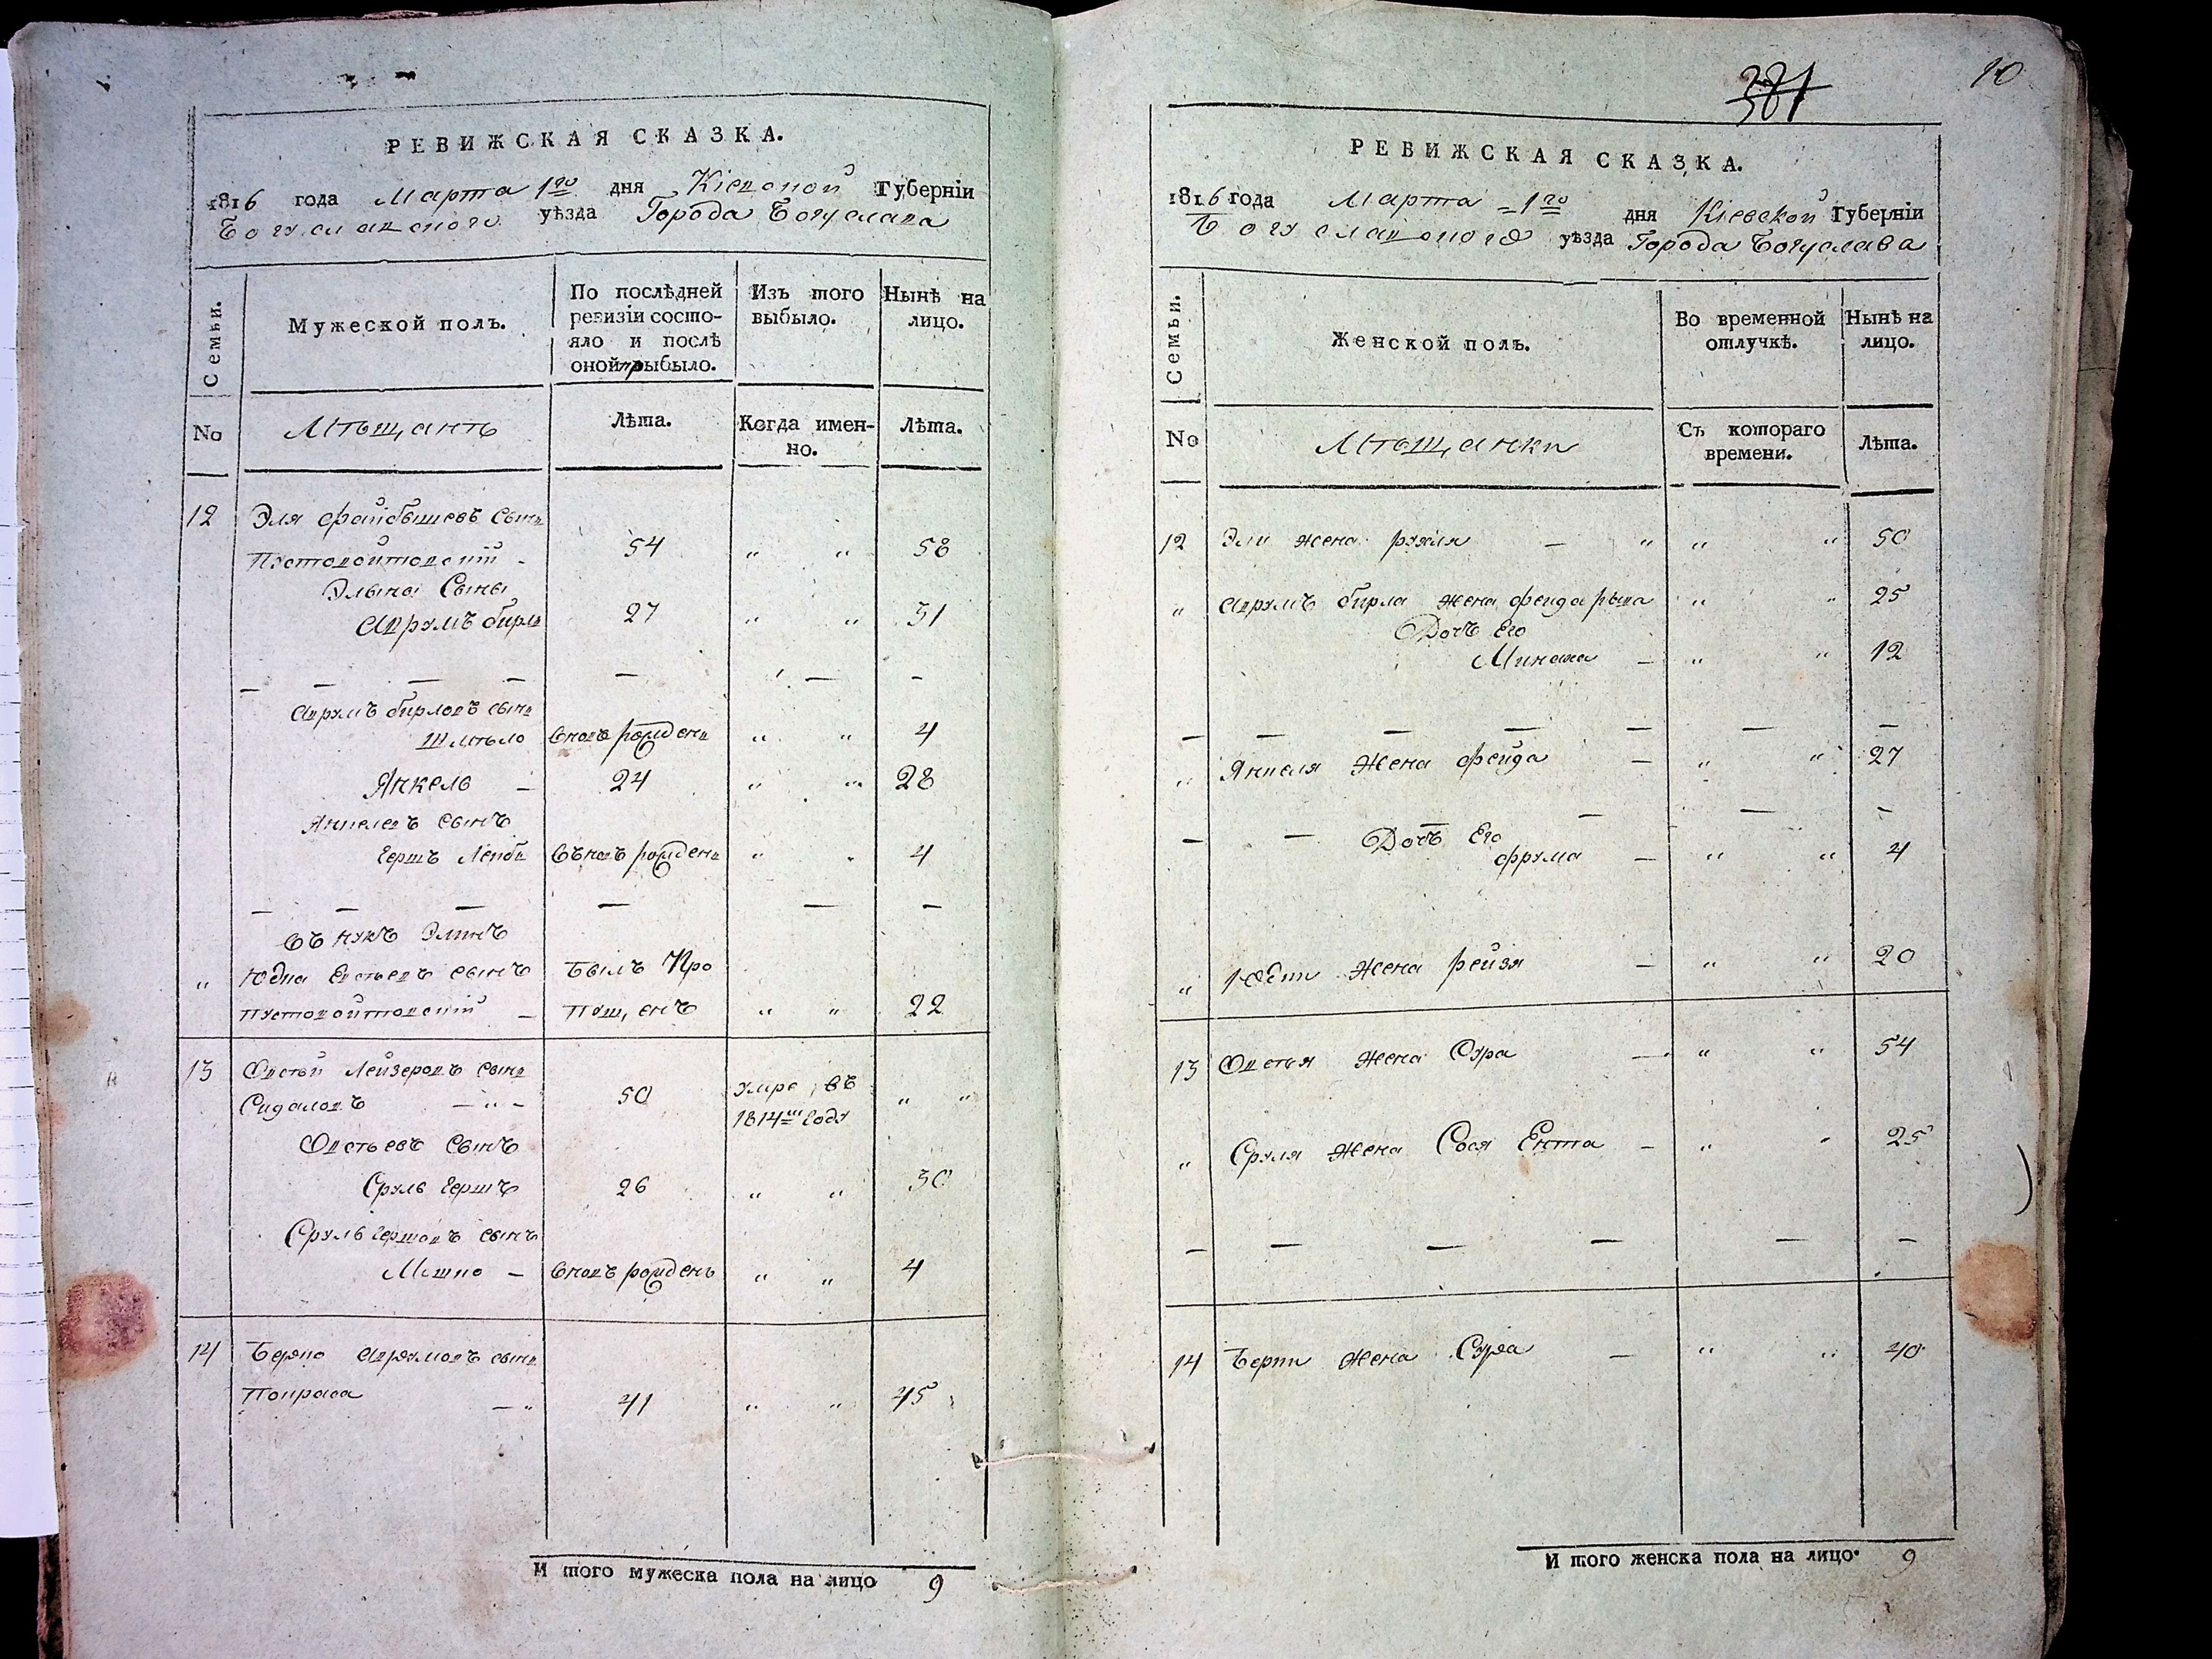 РЕВИЖСКАЯ СКАЗКА.
1816 года Марта 1го дня Кіевской Губерніи
Богуславского уѣзда Города Богуслава
Семьи.
Мужеской полъ.
По послѣдней ревизіи состо-
яло и послѣ
оной прыбыло.
Изъ того
выбыло.
Нынѣ на
лицо.
No
Мѣщанъ
Лѣта.
Когда имен-
но.
Лѣта.
12 Эля Файбышевъ Сынъ
Пустовойтовскій 54 " " 58
Эльны Сыны
Аврумъ бирла 27 " " 31
— — — — — — —
Аврумъ бирловъ сынъ
Шмѣло вновь рожденъ " " 4
Янкель — 24 " " 28
Янкелевъ сынъ
Гершъ Лейба вновь рожденъ " " 4
— — — — — —
внукъ Элинъ
" Юдка Евсѣевъ сынъ былъ Про
Пустовойтовскій — пущенъ " " 22
13 Овсѣй Лейзеровъ сынъ
Сидаловъ — " — 50 умре въ
1814м году " "
Овсѣевъ Сынъ
Сруль Гершъ 26 " " 30
Сруль Гершовъ сынъ
Мошко — вновь рожденъ " " 4
14 Берко Аврумовъ сынъ
Покраса — " 41 " " 45
И того мужеска пола на лицо 9
381
10
РЕВИЖСКАЯ СКАЗКА.
1816 года Марта 1го дня Кіевской Губерніи
Богуславского уѣзда Города Богуслава
Семьи.
Женской полъ.
Во временной
отлучкѣ.
Нынѣ на
лицо.
No
Мѣщанки
Съ котораго
времени.
Лѣта.
12 Эли жена рухля — " " " 50
" Аврумъ бирла жена фейга рыва " " 25
Дочь Его
Минана — " " 12
— — — — — — —
" Янкеля жена фейга — " " 27
— — — — —
Дочь Его
фрума — " " 4
" Юдки жена рейзя — " " 20
13 Овсѣя жена Сура — " " 54
" Сруля жена Сося Ента — " " 25
— — — — — —
14 Берки жена Сура — " " 40
И того женска пола на лицо 9